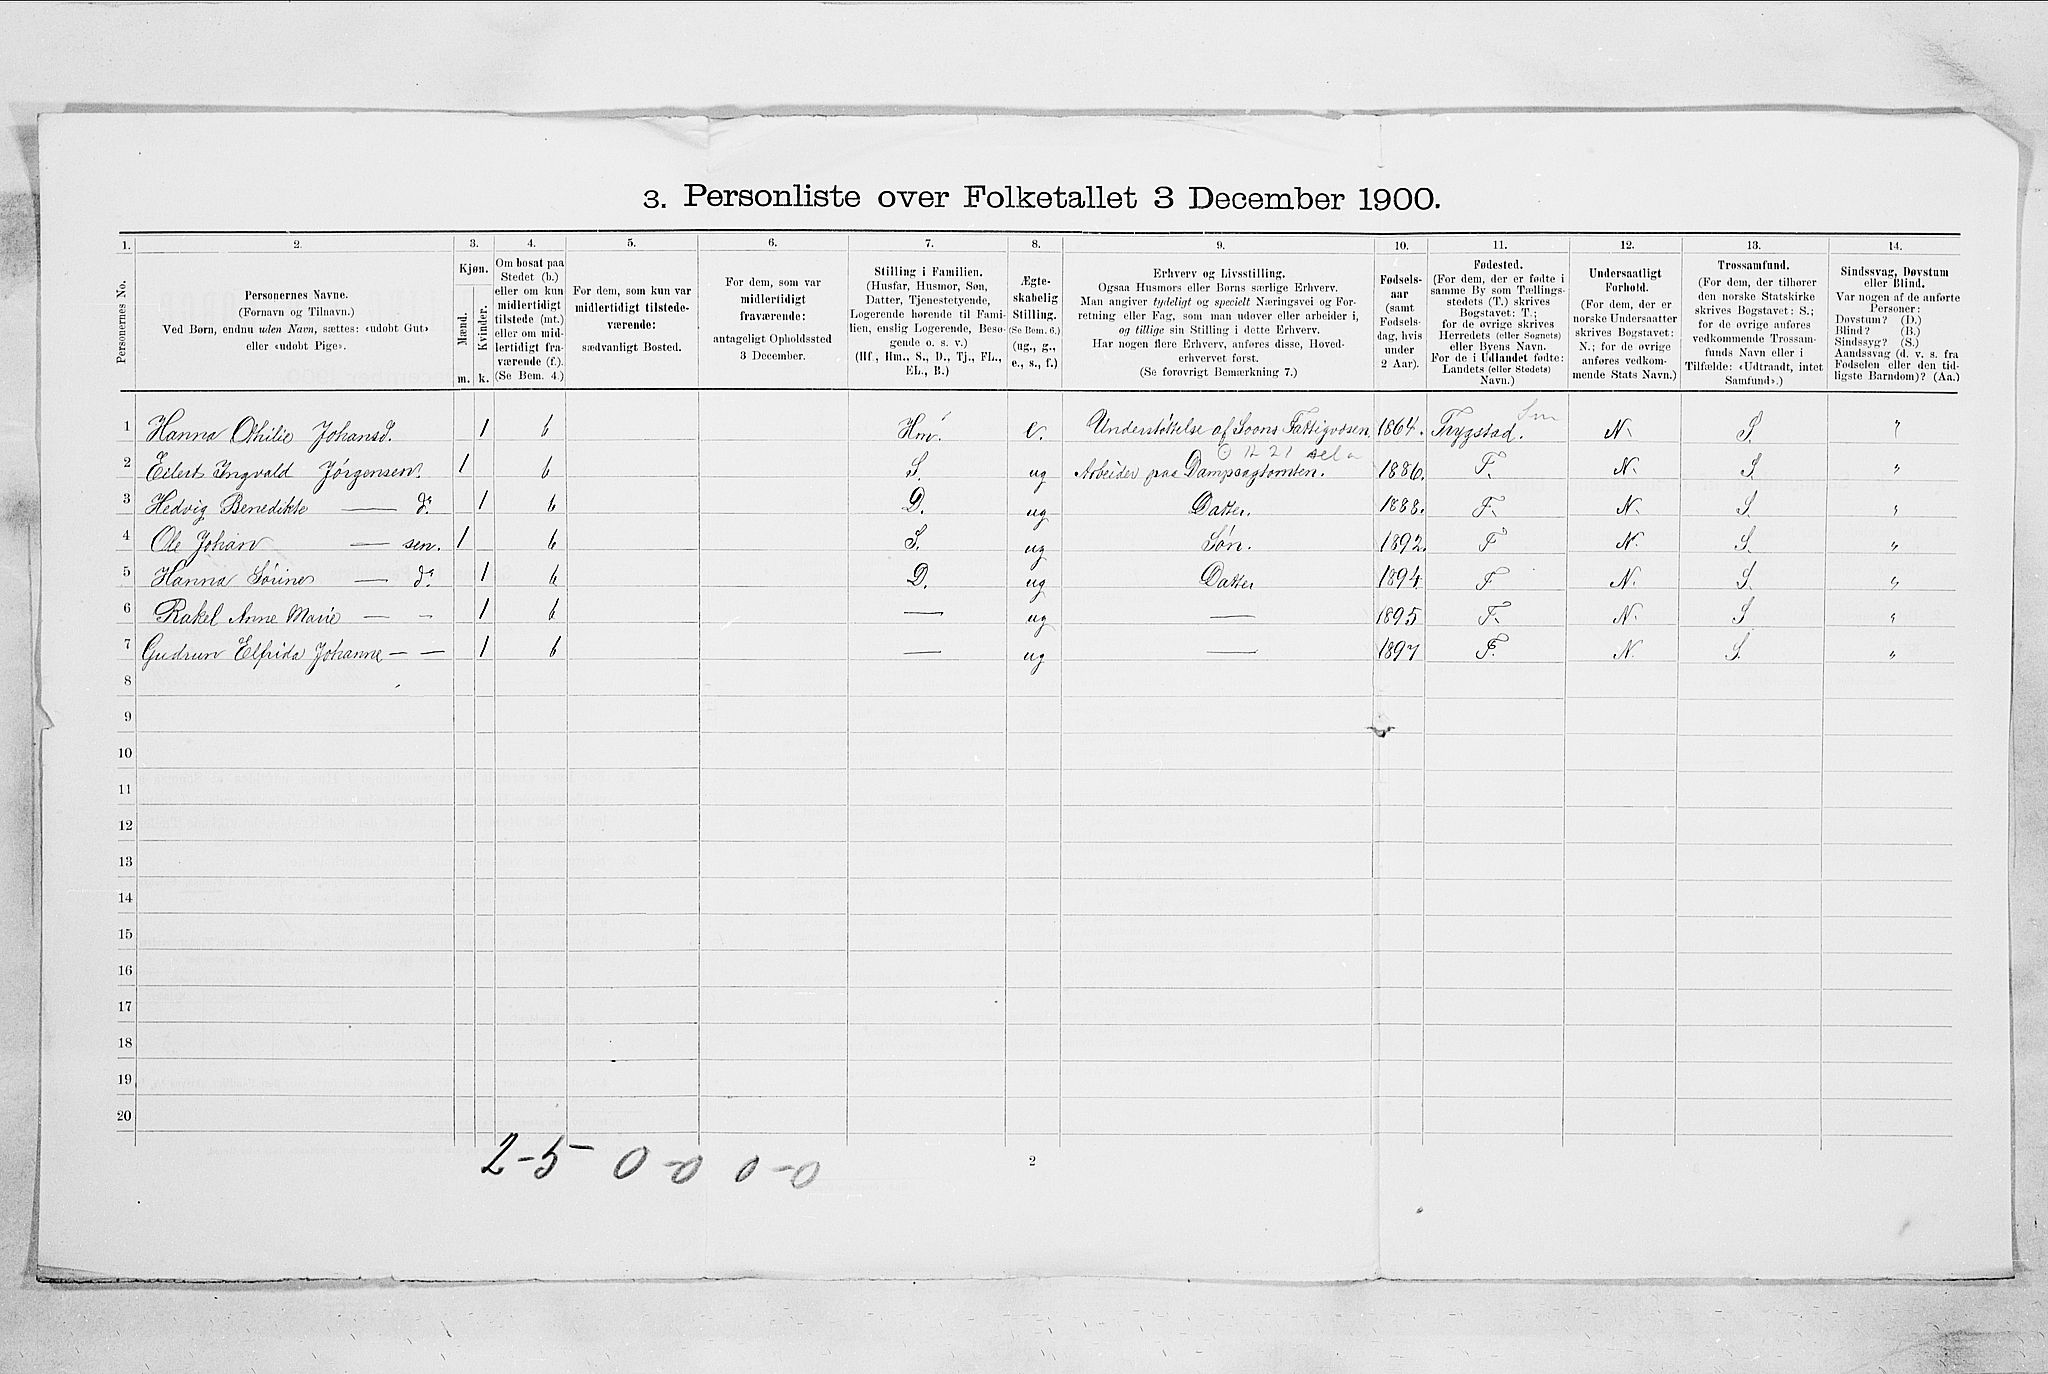 3. Personliste over Folketallet 3 December 1900.
1. 2. 3. 4. 5. 6. 7. 8. 9. 10. 11. 12. 13. 14.
Personernes No.
Personernes Navne.
(Fornavn og Tilnavn.)
Ved Børn, endnu uden Navn, sættes: «udøbt Gut»
eller «udøbt Pige».
Kjøn.
Mænd.
Kvinder.
m. k.
Om bosat paa
Stedet (b.)
eller om kun
midlertidigt
tilstede (mt.)
eller om mid-
lertidigt fra-
værende (f.).
(Se Bem. 4.)
For dem, som kun var
midlertidigt tilstede-
værende:
sædvanligt Bosted.
For dem, som var
midlertidigt
fraværende:
antageligt Opholdssted
3 December.
Stilling i Familien.
(Husfar, Husmor, Søn,
Datter, Tjenestetyende,
Logerende hørende til Fami-
lien, enslig Logerende, Besø-
gende o. s. v.)
(Hf., Hm., S., D., Tj., FL.,
EL., B.)
Ægte-
skabelig
Stilling.
(Se Bem. 6.)
(ug., g.,
e., s., f.)
Erhverv og Livsstilling.
Ogsaa Husmors eller Børns særlige Erhverv.
Man angiver tydeligt og specielt Næringsvei og For-
retning eller Fag, som man udøver eller arbeider i,
og tillige sin Stilling i dette Erhverv.
Har nogen flere Erhverv, anføres disse, Hoved-
erhvervet først.
(Se forøvrigt Bemærkning 7.)
Fødsels-
aar
(samt
Fødsels-
dag, hvis
under
2 Aar).
Fødested.
(For dem, der er fødte i
samme By som Tællings-
stedets (T.) skrives
Bogstavet: T.;
for de øvrige skrives
Herredets (eller Sognets)
eller Byens Navn.
For de i Udlandet fødte:
Landets (eller Stedets)
Navn.)
Undersaatligt
Forhold.
(For dem, der er
norske Undersaatter
skrives Bogstavet:
N.; for de øvrige
anføres vedkom-
mende Stats Navn.)
Trossamfund.
(For dem, der tilhører
den norske Statskirke
skrives Bogstavet: S.;
for de øvrige anføres
vedkommende Trossam-
funds Navn eller i
Tilfælde: «Udtraadt, intet
Samfund».)
Sindssvag, Døvstum
eller Blind.
Var nogen af de anførte
Personer:
Døvstum? (D.)
Blind? (B.)
Sindssyg? (S.)
Aandssvag (d. v. s. fra
Fødselen eller den tid-
ligste Barndom)? (Aa.)
1 Hanna Othilie Johansd. 1 b Hm. e. Understøttelse af Soons Fattigvæsen 1864. Trygstad. N. S. "
2 Eilert Ingvald Jørgensen. 1 b S. ug Arbeider paa Dampsagtomten. 1886. T. N. S "
3 Hedvig Benedikte — dr. 1 b D. ug Datter. 1888. T. N. S "
4 Ole Johan — sen. 1 b S. ug Søn. 1892. T N. S. "
5 Hanna Sørine — dr. 1 b D. ug Datter 1894. T N. S. "
6 Rakel Anne Marie — — 1 b — ug — 1895 T. N. S "
7 Gudrun Elfrida Johanne — — 1 b — ug — 1897 T. N. S. "
8
9
10
11
12
13
14
15
16
17
18
19
20
2-5 0-0 0-0
2